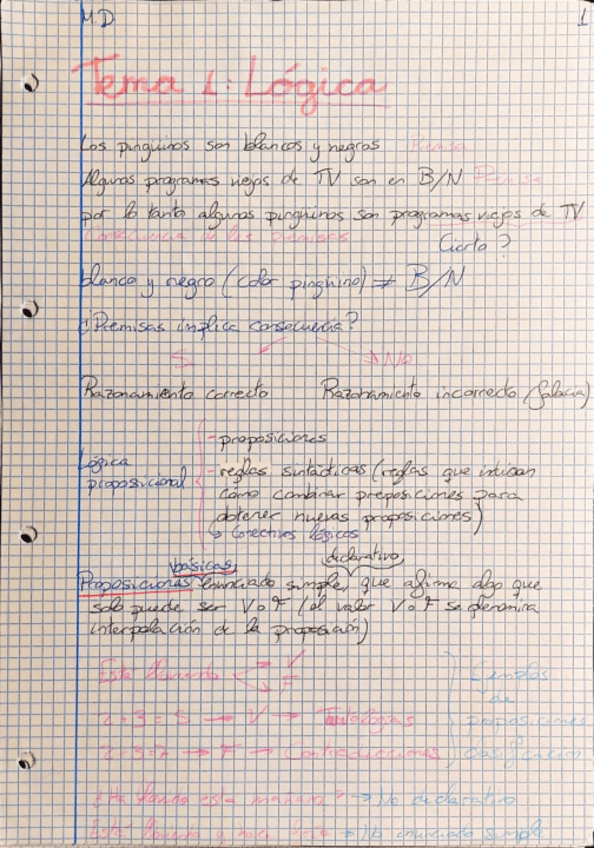 M.D 1
Tema 1: Lógica
Los pingüinos son blancos y negros Premisa
Algunos programas viejos de TV son en B/N Premisa
por lo tanto algunos pingüinos son programas viejos de TV
Consecuencia de las premisas Cierto?
blanco y negro (color pingüino) ≠ B/N
¿Premisas implica consecuencia?
S No
Razonamiento correcto Razonamiento incorrecto (falacia)
- proposiciones
Lógica proposicional
- reglas sintácticas (reglas que indican
como combinar preposiciones para
obtener nuevas proposiciones)
↳ Conectivos lógicos
básicas declarativo
Proposiciones enunciado simple, que afirma algo que
solo puede ser V o F (el valor V o F se denomina
interpolación de la proposición)
Está lloviendo V F
2+3=5 → V → Tautologías
2+3=7 → F → Contradicciones
Ejemplos
de
proposiciones
clasificación
¿Ha llovido esta mañana? → No declarativo
Está lloviendo y hace → No enunciado simple